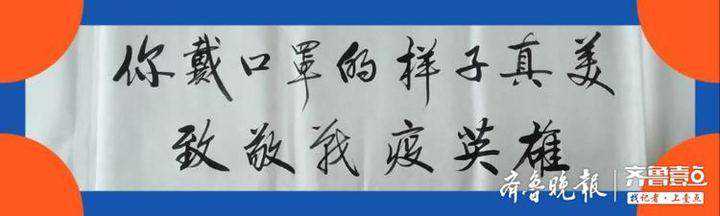 你戴口罩的样子真美
致敬战疫英雄
齐鲁晚报
齐鲁壹点
找记者·上壹点